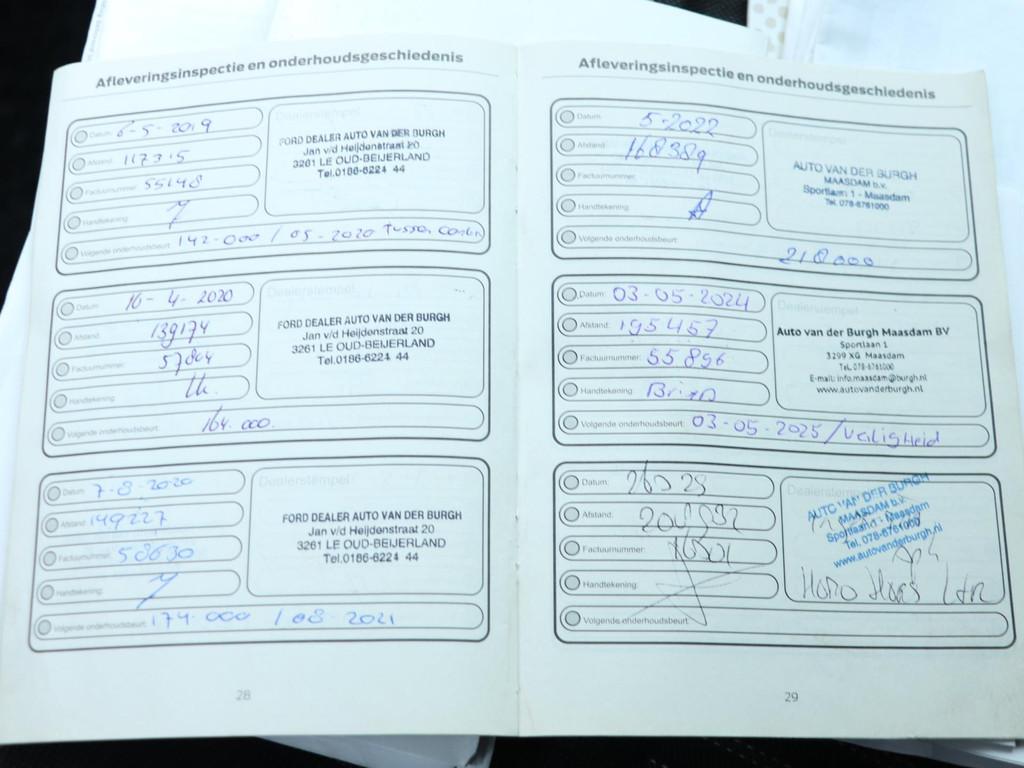 Afleveringsinspectie en onderhoudsgeschiedenis
Datum: 6-5-2019
Afstand: 117315
Factuurnummer: 55148
Handtekening:
Volgende onderhoudsbeurt: 142.000 / 05-2020 tussen
FORD DEALER AUTO VAN DER BURGH
Jan v/d Heijdenstraat 20
3261 LE OUD-BEIJERLAND
Tel.0186-6224 44
Datum: 16-4-2020
Afstand: 139174
Factuurnummer: 57804
Handtekening:
Volgende onderhoudsbeurt: 164.000.
Dealerstempel:
FORD DEALER AUTO VAN DER BURGH
Jan v/d Heijdenstraat 20
3261 LE OUD-BEIJERLAND
Tel.0186-6224 44
Datum: 7-8-2020
Afstand: 149227
Factuurnummer: 58630
Handtekening:
Volgende onderhoudsbeurt: 174.000 / 08-2021
Dealerstempel:
FORD DEALER AUTO VAN DER BURGH
Jan v/d Heijdenstraat 20
3261 LE OUD-BEIJERLAND
Tel.0186-6224 44
28
Afleveringsinspectie en onderhoudsgeschiedenis
Datum: 5-2022
Afstand: 168389
Factuurnummer:
Handtekening:
Volgende onderhoudsbeurt:
210000
Dealerstempel:
AUTO VAN DER BURGH
MAASDAM b.v.
Sportlaan 1 - Maasdam
Tel. 078-6761000
Datum: 03-05-2024
Afstand: 195457
Factuurnummer: 55896
Handtekening:
Volgende onderhoudsbeurt: 03-05-2025/Veiligheid
Dealerstempel:
Auto van der Burgh Maasdam BV
Sportlaan 1
3299 XG Maasdam
Tel. 078-6761000
E-mail: info.maasdam@burgh.nl
www.autovanderburgh.nl
Datum:
Afstand:
Factuurnummer:
Handtekening:
Volgende onderhoudsbeurt:
Dealerstempel:
AUTO VAN DER BURGH
MAASDAM b.v.
Sportlaan 1 - Maasdam
Tel. 078-6761000
www.autovanderburgh.nl
29